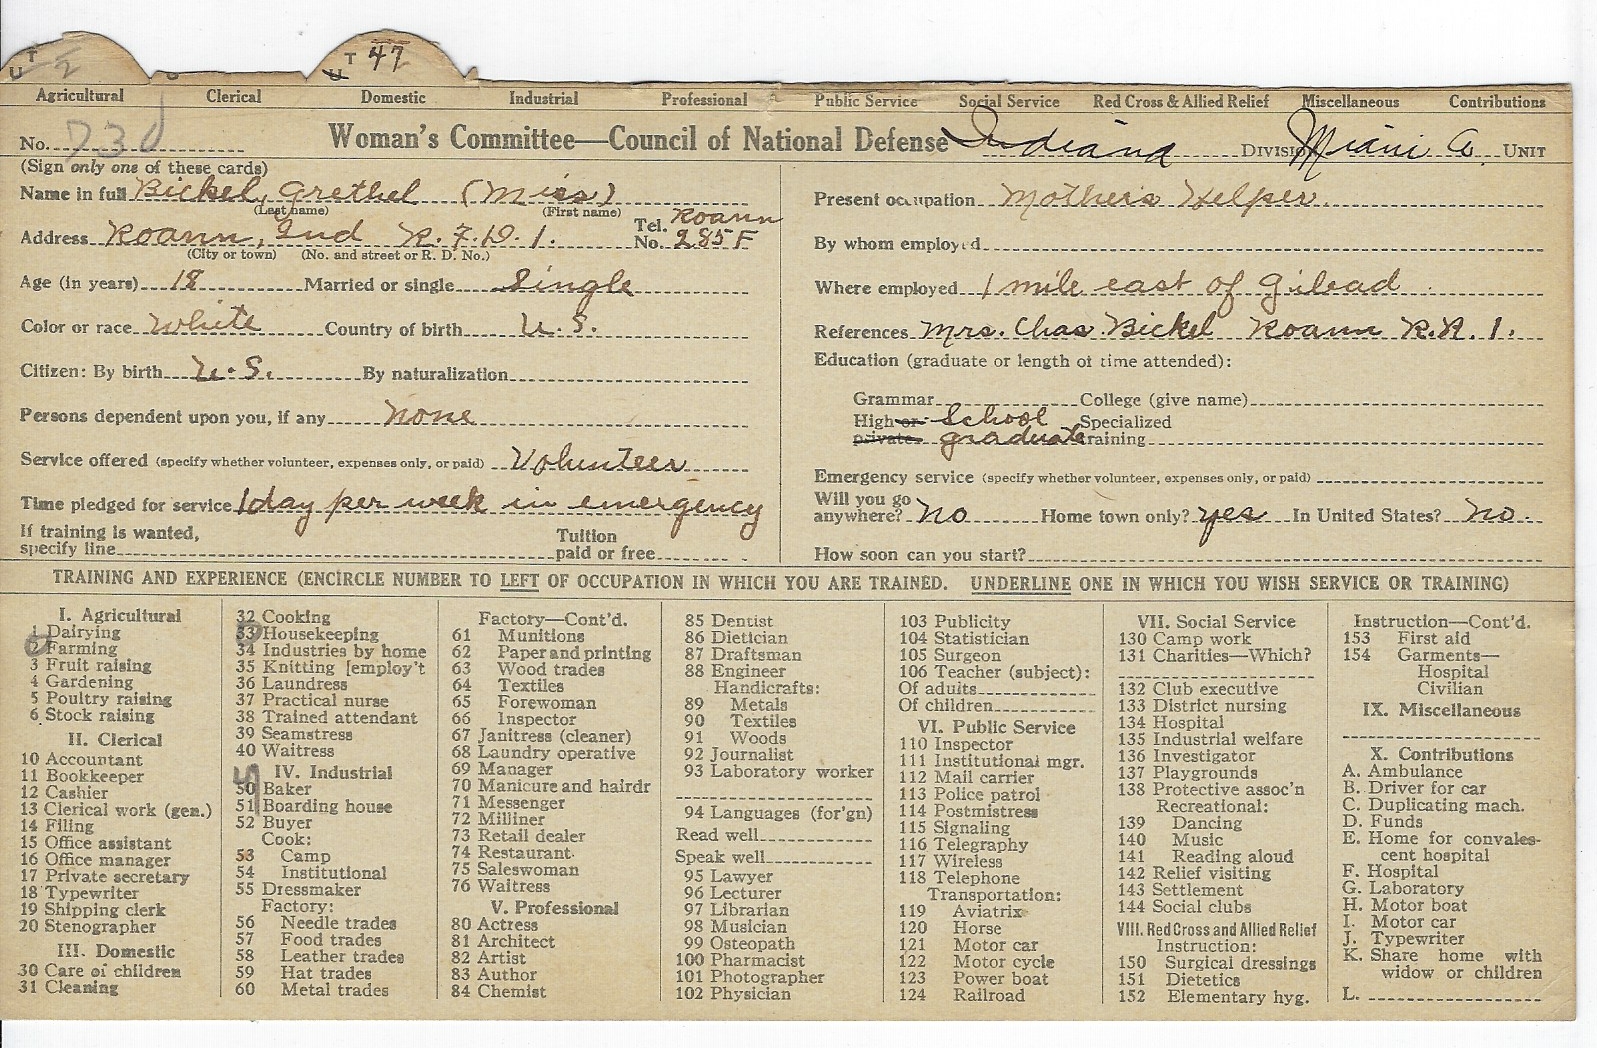 T 2 U
T 47 U
Agricultural Clerical Domestic Industrial Professional Public Service Social Service Red Cross & Allied Relief Miscellaneous Contributions
No. 730
Woman's Committee—Council of National Defense Indiana Division Miami Co. Unit
(Sign only one of these cards)
Name in full Bickel, Grethel (Miss)
(Last name) (First name)
Address Roann, Ind R.F.D. 1. Tel. No. Roann 285F
(City or town) (No. and street or R. D. No.)
Age (in years) 18 Married or single Single
Color or race White Country of birth U.S.
Citizen: By birth U.S. By naturalization
Persons dependent upon you, if any none
Service offered (specify whether volunteer, expenses only, or paid) Volunteer
Time pledged for service 1 day per week in emergency
If training is wanted, specify line Tuition paid or free
Present occupation Mothers Helper.
By whom employed
Where employed 1 mile east of Gilead
References Mrs. Chas. Bickel Roann R.R. 1.
Education (graduate or length of time attended):
Grammar College (give name)
High or School Specialized
private graduate training
Emergency service (specify whether volunteer, expenses only, or paid)
Will you go anywhere? No Home town only? yes In United States? No.
How soon can you start?
TRAINING AND EXPERIENCE (ENCIRCLE NUMBER TO LEFT OF OCCUPATION IN WHICH YOU ARE TRAINED. UNDERLINE ONE IN WHICH YOU WISH SERVICE OR TRAINING)
I. Agricultural
1 Dairying
2 Farming
3 Fruit raising
4 Gardening
5 Poultry raising
6 Stock raising
II. Clerical
10 Accountant
11 Bookkeeper
12 Cashier
13 Clerical work (gen.)
14 Filing
15 Office assistant
16 Office manager
17 Private secretary
18 Typewriter
19 Shipping clerk
20 Stenographer
III. Domestic
30 Care of children
31 Cleaning
32 Cooking
33 Housekeeping
34 Industries by home
35 Knitting [employ't
36 Laundress
37 Practical nurse
38 Trained attendant
39 Seamstress
40 Waitress
IV. Industrial
50 Baker
51 Boarding house
52 Buyer
Cook:
53 Camp
54 Institutional
55 Dressmaker
Factory:
56 Needle trades
57 Food trades
58 Leather trades
59 Hat trades
60 Metal trades
Factory—Cont'd.
61 Munitions
62 Paper and printing
63 Wood trades
64 Textiles
65 Forewoman
66 Inspector
67 Janitress (cleaner)
68 Laundry operative
69 Manager
70 Manicure and hairdr
71 Messenger
72 Milliner
73 Retail dealer
74 Restaurant
75 Saleswoman
76 Waitress
V. Professional
80 Actress
81 Architect
82 Artist
83 Author
84 Chemist
85 Dentist
86 Dietician
87 Draftsman
88 Engineer
Handicrafts:
89 Metals
90 Textiles
91 Woods
92 Journalist
93 Laboratory worker
94 Languages (for'gn)
Read well
Speak well
95 Lawyer
96 Lecturer
97 Librarian
98 Musician
99 Osteopath
100 Pharmacist
101 Photographer
102 Physician
103 Publicity
104 Statistician
105 Surgeon
106 Teacher (subject):
Of adults
Of children
VI. Public Service
110 Inspector
111 Institutional mgr.
112 Mail carrier
113 Police patrol
114 Postmistress
115 Signaling
116 Telegraphy
117 Wireless
118 Telephone
Transportation:
119 Aviatrix
120 Horse
121 Motor car
122 Motor cycle
123 Power boat
124 Railroad
VII. Social Service
130 Camp work
131 Charities—Which?
132 Club executive
133 District nursing
134 Hospital
135 Industrial welfare
136 Investigator
137 Playgrounds
138 Protective assoc'n
Recreational:
139 Dancing
140 Music
141 Reading aloud
142 Relief visiting
143 Settlement
144 Social clubs
VIII. Red Cross and Allied Relief
Instruction:
150 Surgical dressings
151 Dietetics
152 Elementary hyg.
Instruction—Cont'd.
153 First aid
154 Garments—
Hospital
Civilian
IX. Miscellaneous
X. Contributions
A. Ambulance
B. Driver for car
C. Duplicating mach.
D. Funds
E. Home for convales-
cent hospital
F. Hospital
G. Laboratory
H. Motor boat
I. Motor car
J. Typewriter
K. Share home with
widow or children
L.